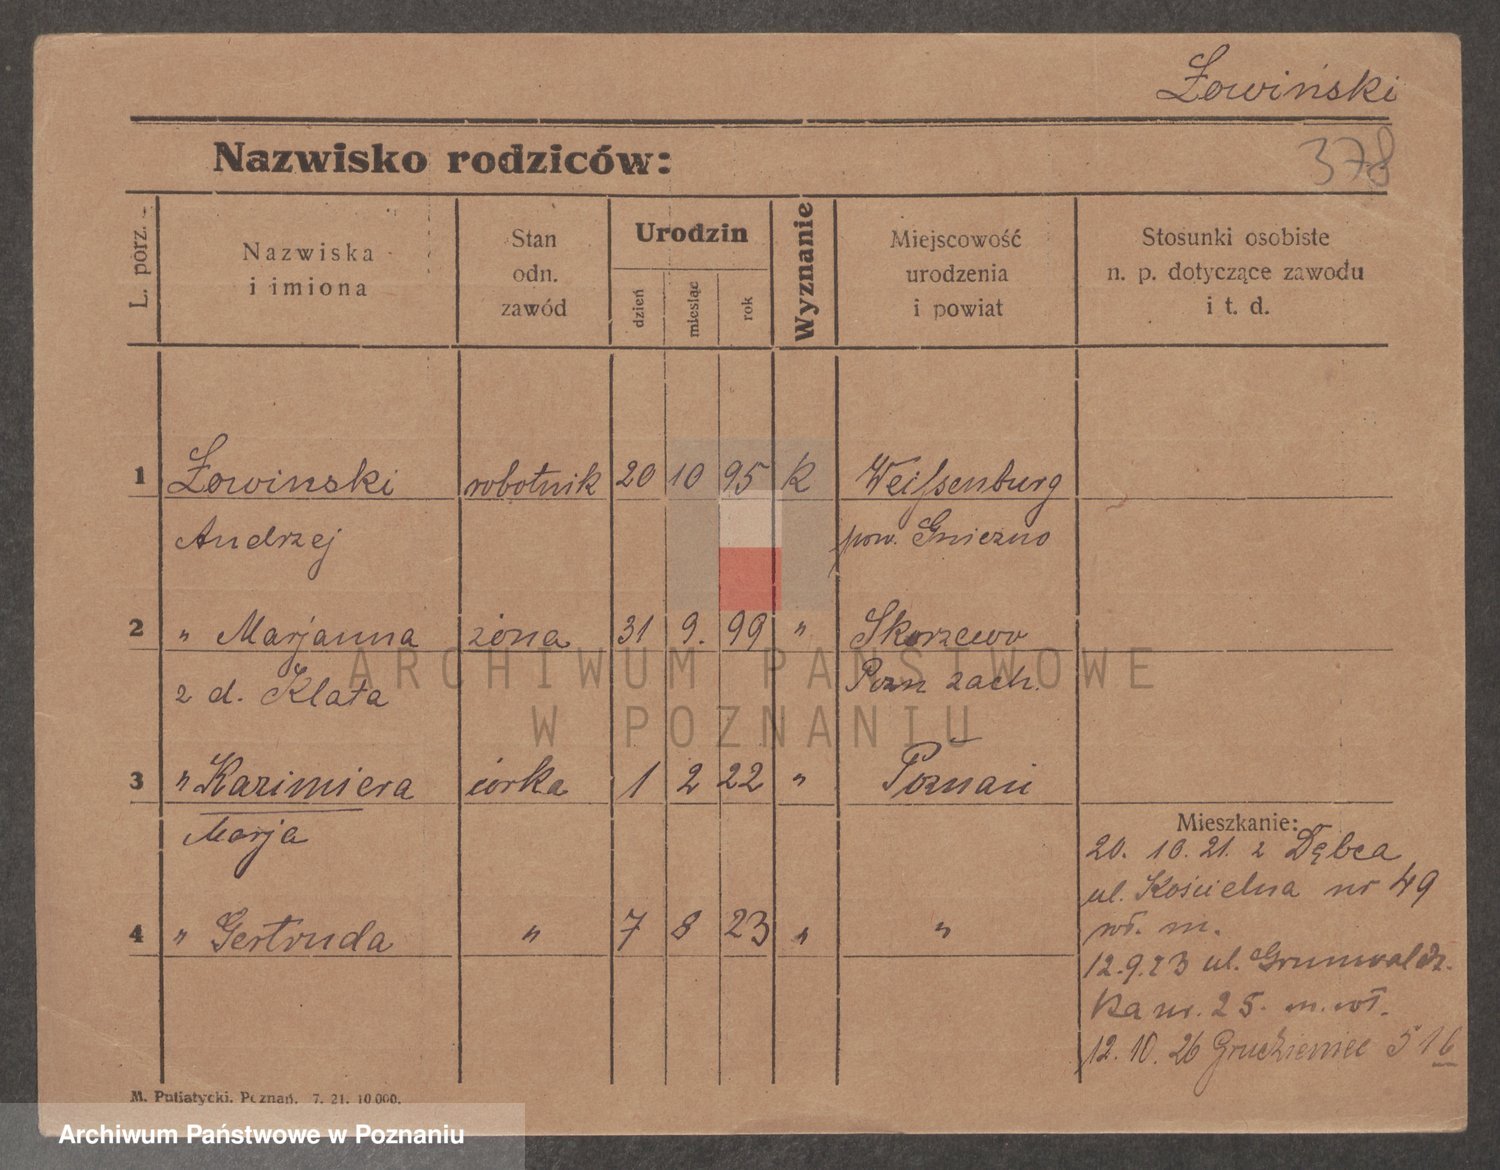 Łowiński
Nazwisko rodziców:
378
L. porz.
Nazwiska
i imiona
Stan
odn.
zawód
Urodzin
dzień
miesiąc
rok
Wyznanie
Miejscowość
urodzenia
i powiat
Stosunki osobiste
n. p. dotyczące zawodu
i t. d.
1 Łowinski robotnik 20 10 95 k Weißenburg
Andrzej pow. Gniezno
2 " Marjanna żona 31 9. 99 " Skorzewo
z d. Klata Pozn zach.
3 " Kazimiera córka 1 2 22 " Poznań
Marja
Mieszkanie:
20. 10. 21. z Dębca
ul. Kościelna nr 49
wł. m.
4 " Gertruda " 7 8 23 " "
12.9.23 ul. Grunwaldz.
ka nr. 25. m. wł.
12. 10. 26 Grudzieniec 516
M. Putiatycki. Poznań. 7. 21. 10 000.
ARCHIWUM PAŃSTWOWE
W POZNANIU
Archiwum Państwowe w Poznaniu